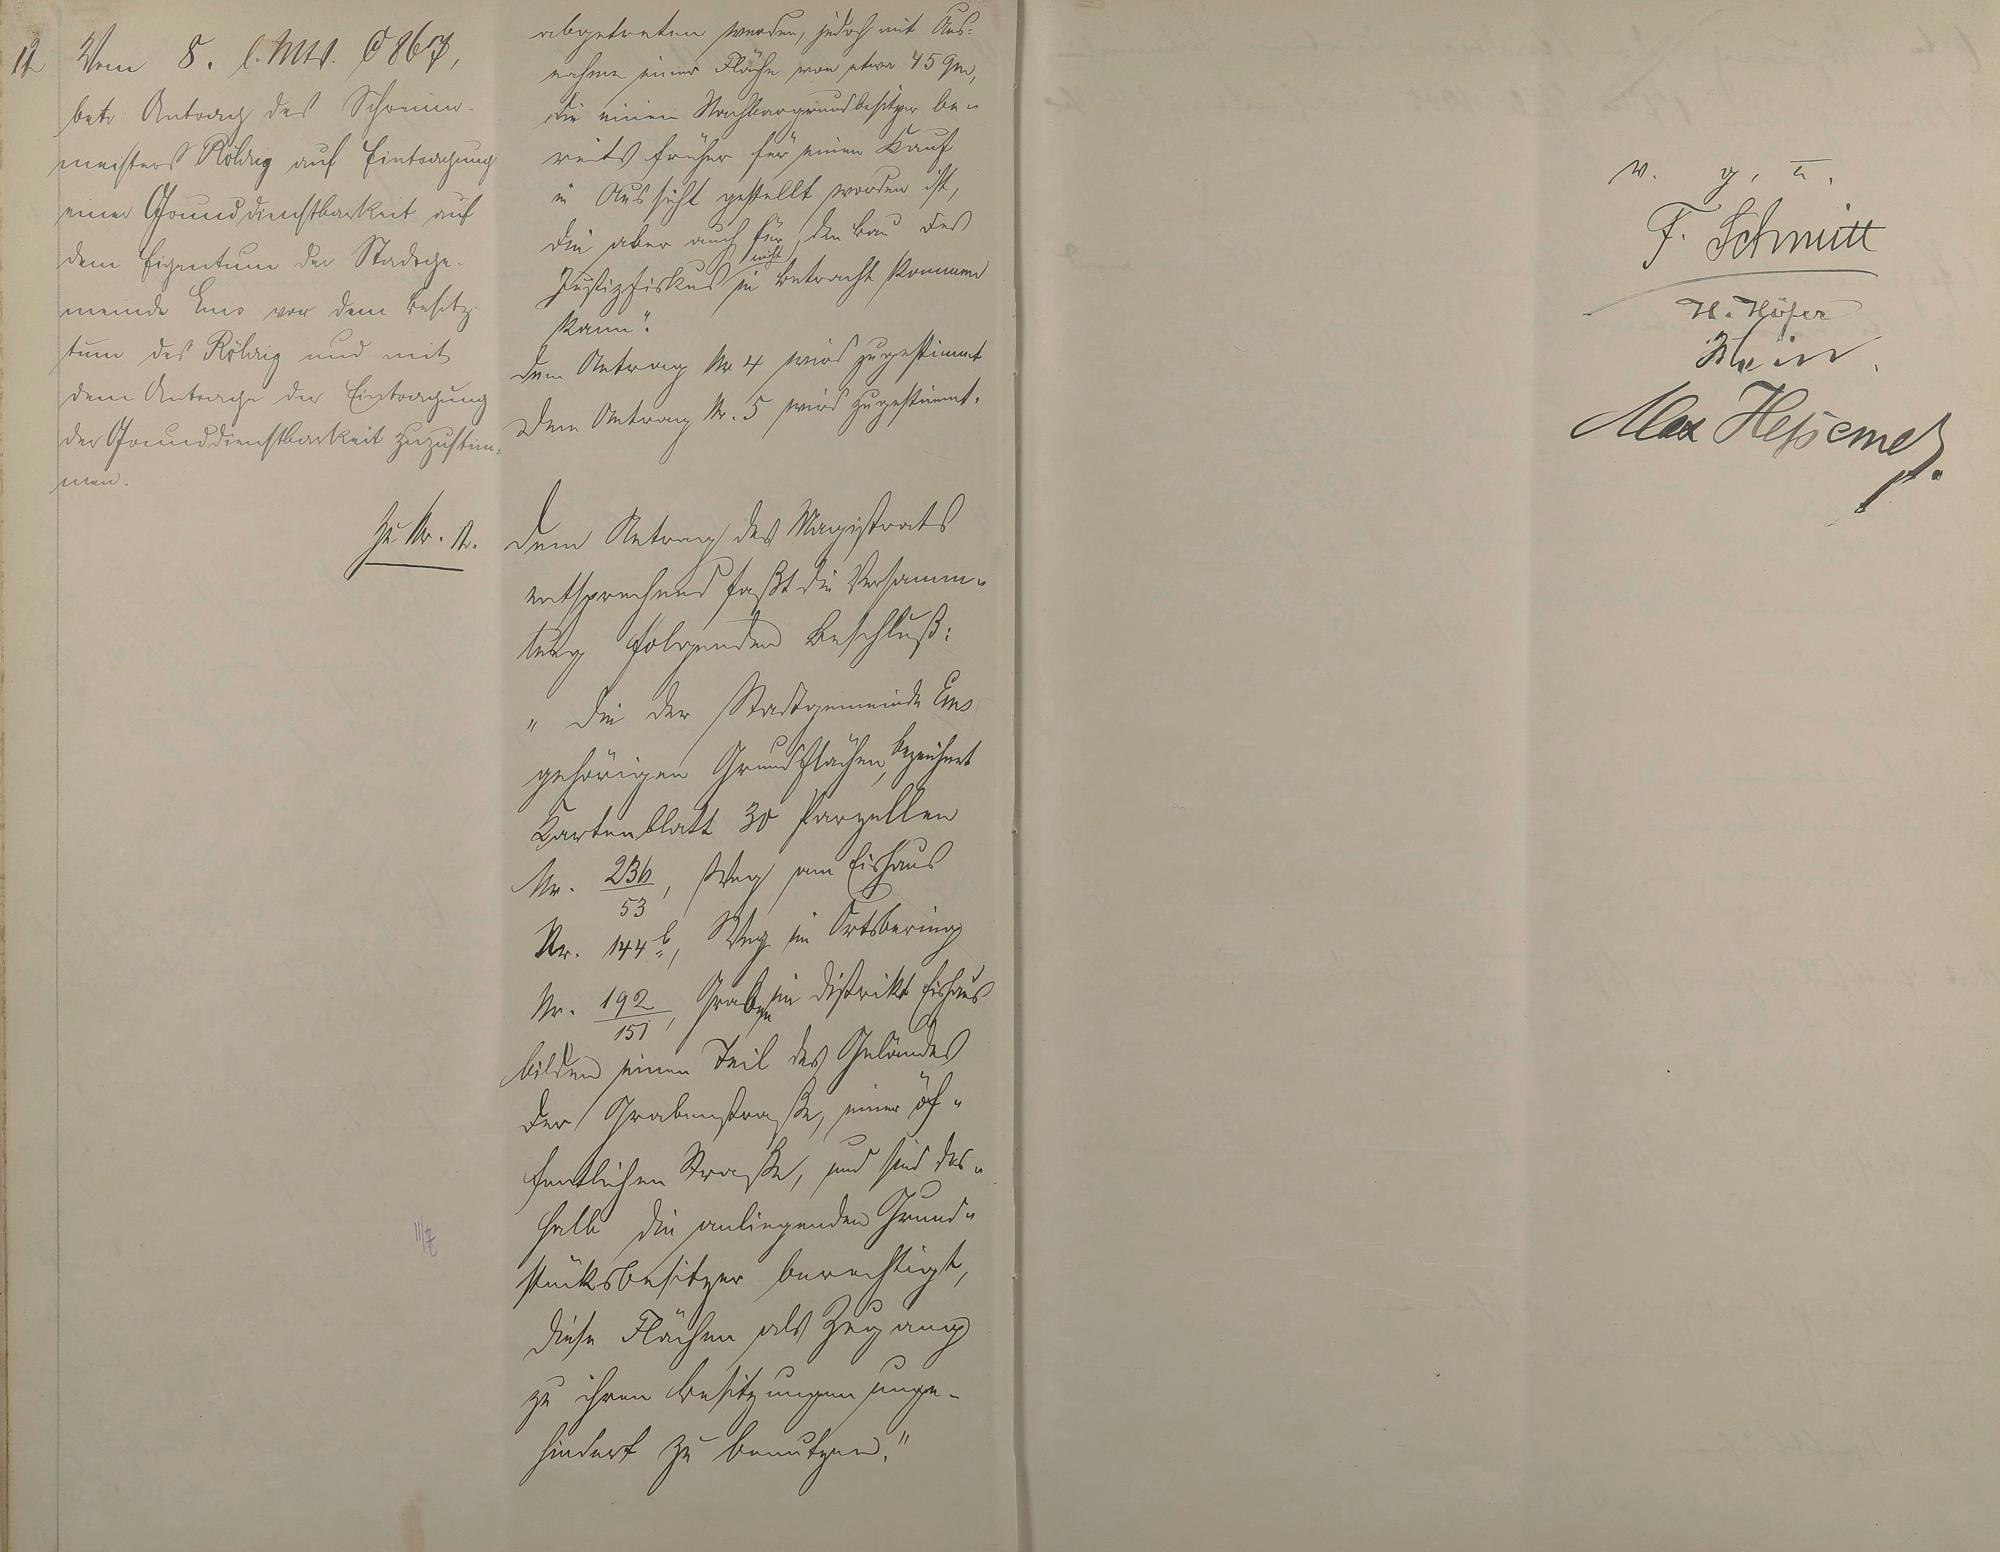 12 Vom 8. l. Mts. C 867,
betr. Antrag des Schreiner-
meisters Röhrig auf Eintragung
einer Grunddienstbarkeit auf
dem Eigentum der Stadtge-
meinde Ems vor dem Besitz-
tum des Röhrig und mit
dem Antrage der Eintragung
der Grunddienstbarkeit zuzustim-
men.
abgetreten werden, jedoch mit Aus-
nahme einer Fläche von etwa 45 qm,
die einem Nachbargrundbesitzer be-
reits früher für einen Kauf
in Aussicht gestellt worden ist,
die aber auch für den Bau des
Justizfiskus nicht in Betracht kommen
kann".
Dem Antrag Nr 4 wird zugestimmt
Dem Antrag Nr. 5 wird zugestimmt.
Zu Nr. 12.
Dem Antrag des Magistrats
entsprechend faßt die Versamm-
lung folgenden Beschluß:
" Die der Stadtgemeinde Ems
gehörigen Grundflächen, bezeichnet
Kartenblatt 30 Parzellen
Nr. 236/53, Weg am Eishaus
Nr. 144b, Weg im Ortsbering
Nr. 192/151, Graben im Distrikt Eishaus
bilden einen Teil des Geländes
der Grabenstraße, einer öf-
fentlichen Straße, und sind des-
halb die anliegenden Grund-
stücksbesitzer berechtigt,
diese Flächen als Zugang
zu ihren Besitzungen unge-
hindert zu benutzen."
11/7
v. g. u.
F. Schmitt
H. Höfer
Max Hessemer.